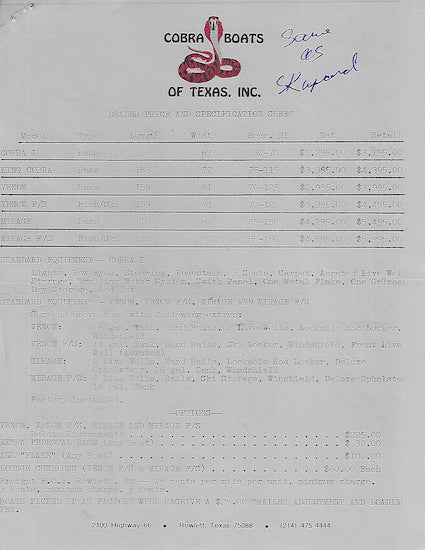 COBRA BOATS
OF TEXAS, INC.
Same
as
DEALER PRICE AND SPECIFICATION SHEET
Model Type Length Width Recc. HP Net Retail
COBRA I Bass 16 67 30-70 $2,295.00 $3,195.00
KING COBRA Bass 169 72 75-115 $3,395.00 $4,395.00
VENOM Bass 159 81 70-125 $2,995.00 $3,995.00
VENOM F/S Fish/Ski 159 81 70-125 $3,495.00 $4,495.00
MIRAGE Bass 18 82 85-150 $4,195.00 $5,495.00
MIRAGE F/S Fish/Ski 18 82 85-150 $4,695.00 $5,995.00
STANDARD EQUIPMENT - COBRA I
Lights, Bow Eyes, Steering, Pedestals, 3 Seats, Carpet, Aerated Live Well
Storage, Trolling Motor System, Swith Panel, One Metal Flake, One Gelcoat
Dry Storage, Rod Box
STANDARD EQUIPMENT - VENOM, VENOM F/S, MIRAGE AND MIRAGE F/S
Same as above boat with following extras:
VENOM: 18 gal. Tank, Hand Rails, 2 Live Wells, Lockable Rod Locker,
Windshield
VENOM F/S: Tank, Hand Rails, Ski Locker, Windshield, Front Live
Well (Aerated)
MIRAGE: 2 Live Wells, Hand Rails, Lockable Rod Locker, Deluxe
Upholstery, 18 gal. Tank, Windshield
MIRAGE F/S: 2 Live Wells, Rails, Ski Storage, Windshield, Deluxe Upholstery
18 gal. Tank
Factory Installed.
--OPTIONS--
VENOM, VENOM F/S, MIRAGE AND MIRAGE F/S
Deluxe Instruments $225.00
EXTRA PEDESTAL BASE (Any Boat) $ 30.00
ADD "FLASH" (Any Boat) $100.00
LOUNGE CUSHIONS (VENOM F/S & MIRAGE F/S) $60.00 Each
Freight F.O.B. Rowlett, Tx -- 25 cents per mile per unit, minimum charge,
3 boats, maximum charge, 5 boats.
BOATS PICKED UP AT FACTORY WILL RECEIVE A $75.00 TRAILER ADJUSTMENT AND LOADING
FEE.
2100 Highway 66 • Rowlett, Texas 75088 • (214) 475-4444